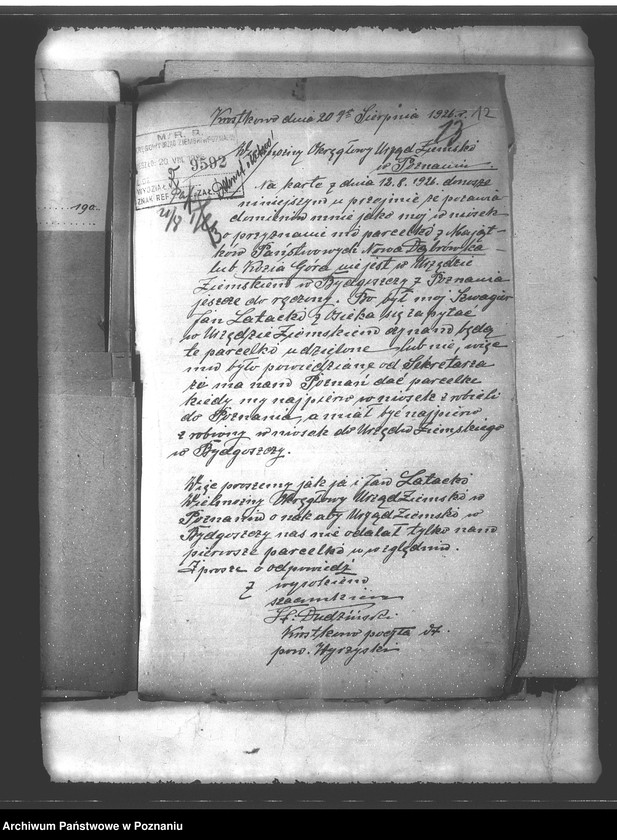 Kostkowo dnia 20 go Sierpnia 1926 r. 12
13
Wielmożny Okręgłowy Urząd Ziemski
w Poznaniu
M/R. R.
OKRĘGOWY URZĄD ZIEMSKI W POZNANIU
20. VIII.
9592
WYDZIAŁ
ZNAK REF. ZAŁ.
21/8
Na karte z dnia 12.8.1926. donosze
niniejszym u przejmie że pozawia
domieniu mnie jako mój wniosek
o przyznani mi parcelki z Mająt
ków Państwowych Nowa Dąbrówka
lub Kozia Góra nie jest w Urzędzie
Ziemskiem w Bydgoszczy z Poznania
jeszcze do ręczony. Bo był mój Szwagier
Jan Latacki z Osieka się zapytać
w Urzędzie Ziemskiem czy nam będą
te parcelki udzielone lub nie, więc
mu było powiedziane od Sekretarza
że ma nam Poznań dać parcelke
kiedy my najpierw wniosek zrobili
do Poznania, a miał być najpierw
zrobiony wniosek do Urzędu Ziemskiego
w Bydgoszczy.
Więc prosiemy jak ja i Jan Latacki
Wielmożny Okręgłowy Urząd Ziemski w
Poznaniu o nak aby Urząd Ziemski w
Bydgoszczy nas nie odalał tylko nam
pierwsze parcelki uwzględnił.
I prosze o odpowiedź
Z wysokiem
szacunkiem
St. Dudziński
Kostkowo poczta
pow. Wyrzyski
19
Archiwum Państwowe w Poznaniu